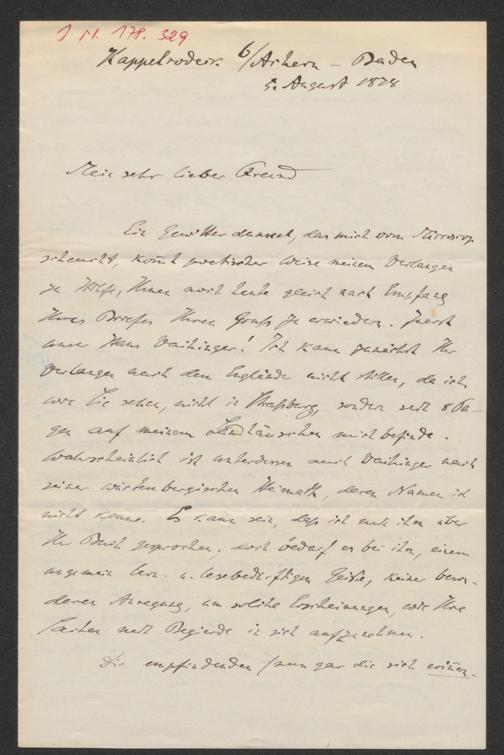 1 H. 178. 329
Kappelrodeck b/Achern – Baden
5. August 1878
Mein sehr lieber Freund
Ein Gewitterdunkel, das mich vom Mikroskop
scheucht, kommt poetischer Weise meinem Verlangen
zu Hülfe, Ihnen noch heute gleich nach Empfang
Ihres Briefes Ihren Gruss zu erwiedern. Zuerst
unser Hans Vaihinger! Ich kann zunächst Ihr
Verlangen nach dem Engländer nicht stillen, da ich,
wie Sie sehen, nicht in Strassburg, sondern seit 8 Ta-
gen auf meinem Landhäuschen mich befinde.
Wahrscheinlich ist unterdessen auch Vaihinger nach
seiner würtenbergischen Heimath, deren Namen ich
nicht kenne. Es kann sein, dass ich mit ihm über
Ihr Buch gesprochen, doch bedarf es bei ihm, einem
ungemein lern- u. lesebedürftigen Geiste, keine beson-
deren Anregung, um solche Erscheinungen, wie Ihre
Sachen mit Begierde in sich aufzunehmen.
Die empfindenden (nun gar die sich erinnern-